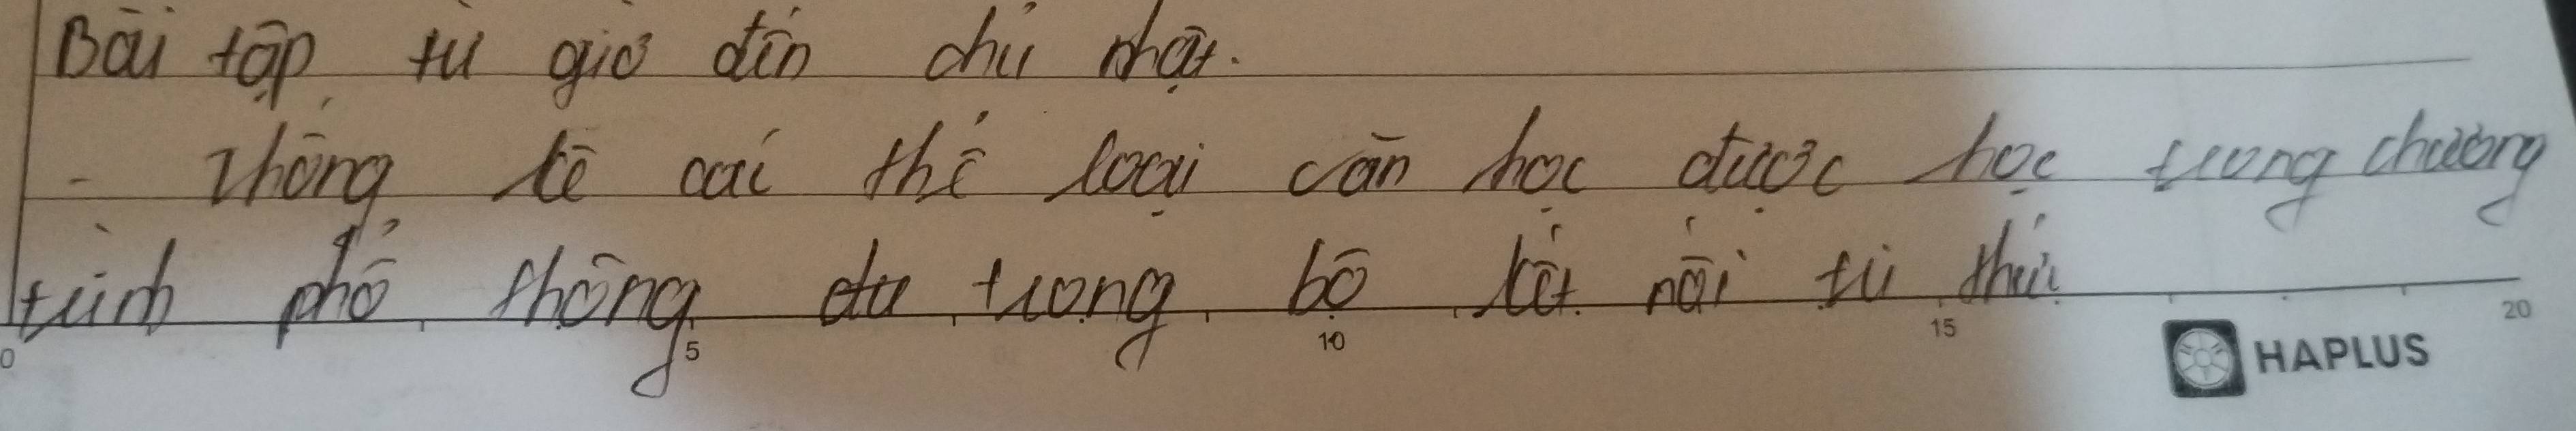 Bài tập từ giờ đến chủ nhật.
- Thống kê các thể loại văn học được học trong chương
trình phổ thông dựa trong bộ kết nối tri thức
0 5 10 15 20
HAPLUS